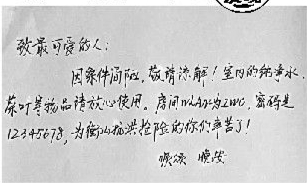 致最可爱的人：
因条件简陋，敬请谅解！室内的纯净水、
茶叶等物品请放心使用。房间WLAN为ZMC，密码是
12345678，为衡山抗洪抢险的你们辛苦了！
顺颂 晚安